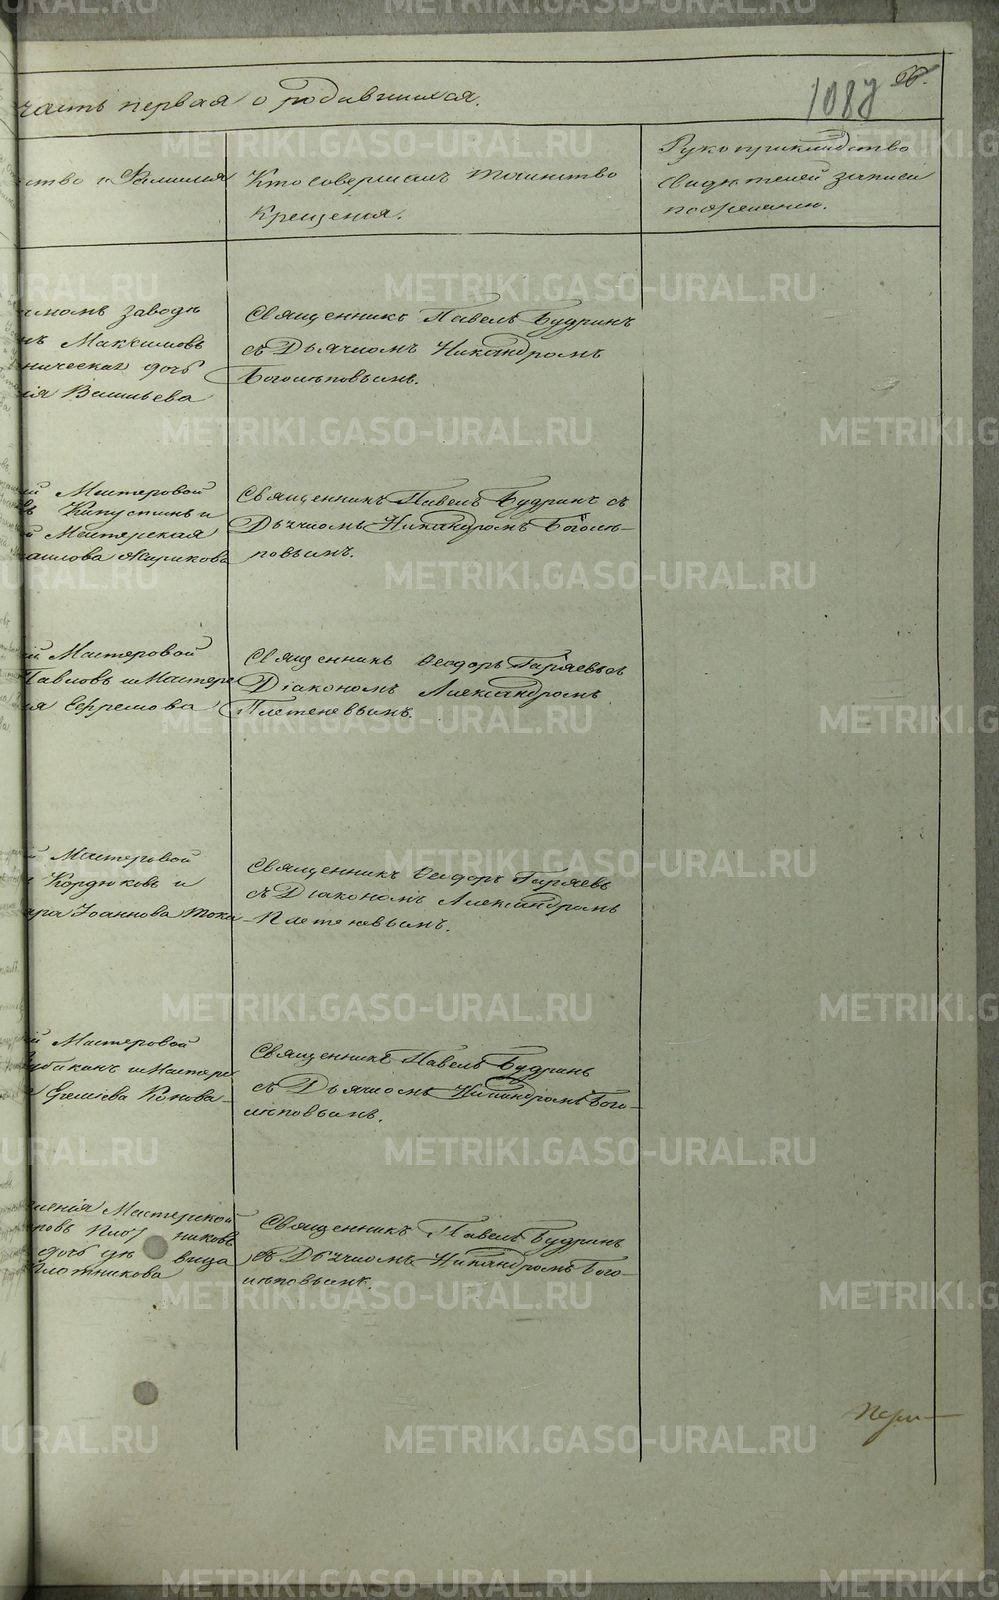 часть первая о родившихся.
108
ство и Фамилия
Кто совершалъ таинство
крещенія.
Рукоприкладство
свидѣтелей записи
по желанию.
заводѣ
Максимовъ
дочь
Васильева
Священникъ Павелъ Будринъ
съ Дьячкомъ Никандромъ
Боголѣповымъ.
й Мастеровой
Капустинъ и
й Мастерская
Жирикова
Священникъ Павелъ Будринъ съ
Дьячкомъ Никандромъ Боголѣ-
повымъ.
й Мастеровой
Павловъ и Мастерс
Ефремова
Священникъ Феодоръ Гаряевъ съ
Діакономъ Александромъ
Плетеневымъ.
й Мастеровой
Кордюковъ и
Іоаннова Тока-
Священникъ Феодоръ Гаряевъ
съ Діакономъ Александромъ
Плетеневымъ.
й Мастеровой
и Мастерс
Конова-
Священникъ Павелъ Будринъ
съ Дьячкомъ Никандромъ Бого-
лѣповымъ.
Мастерской
дочь вица
Плотникова
Священникъ Павелъ Будринъ
съ Дьячкомъ Никандромъ Бого-
лѣповымъ.
METRIKI.GASO-URAL.RU